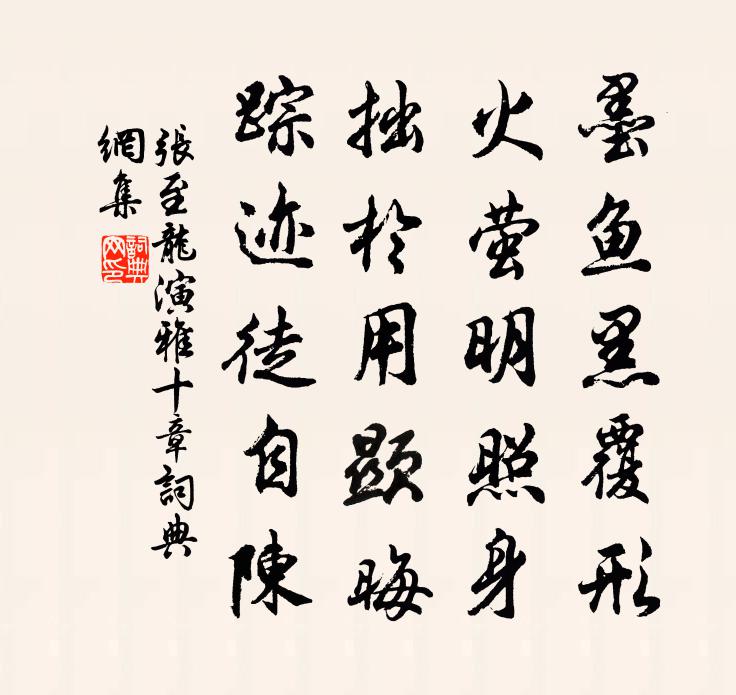 墨鱼黑覆形
火萤明照身
拙於用顯晦
踪迹徒自陳
張至龍演雅十章詞典
網集
詞典
网印